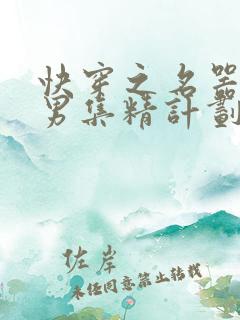 快穿之名器
男集精計劃
佐岸
未經同意禁止轉載